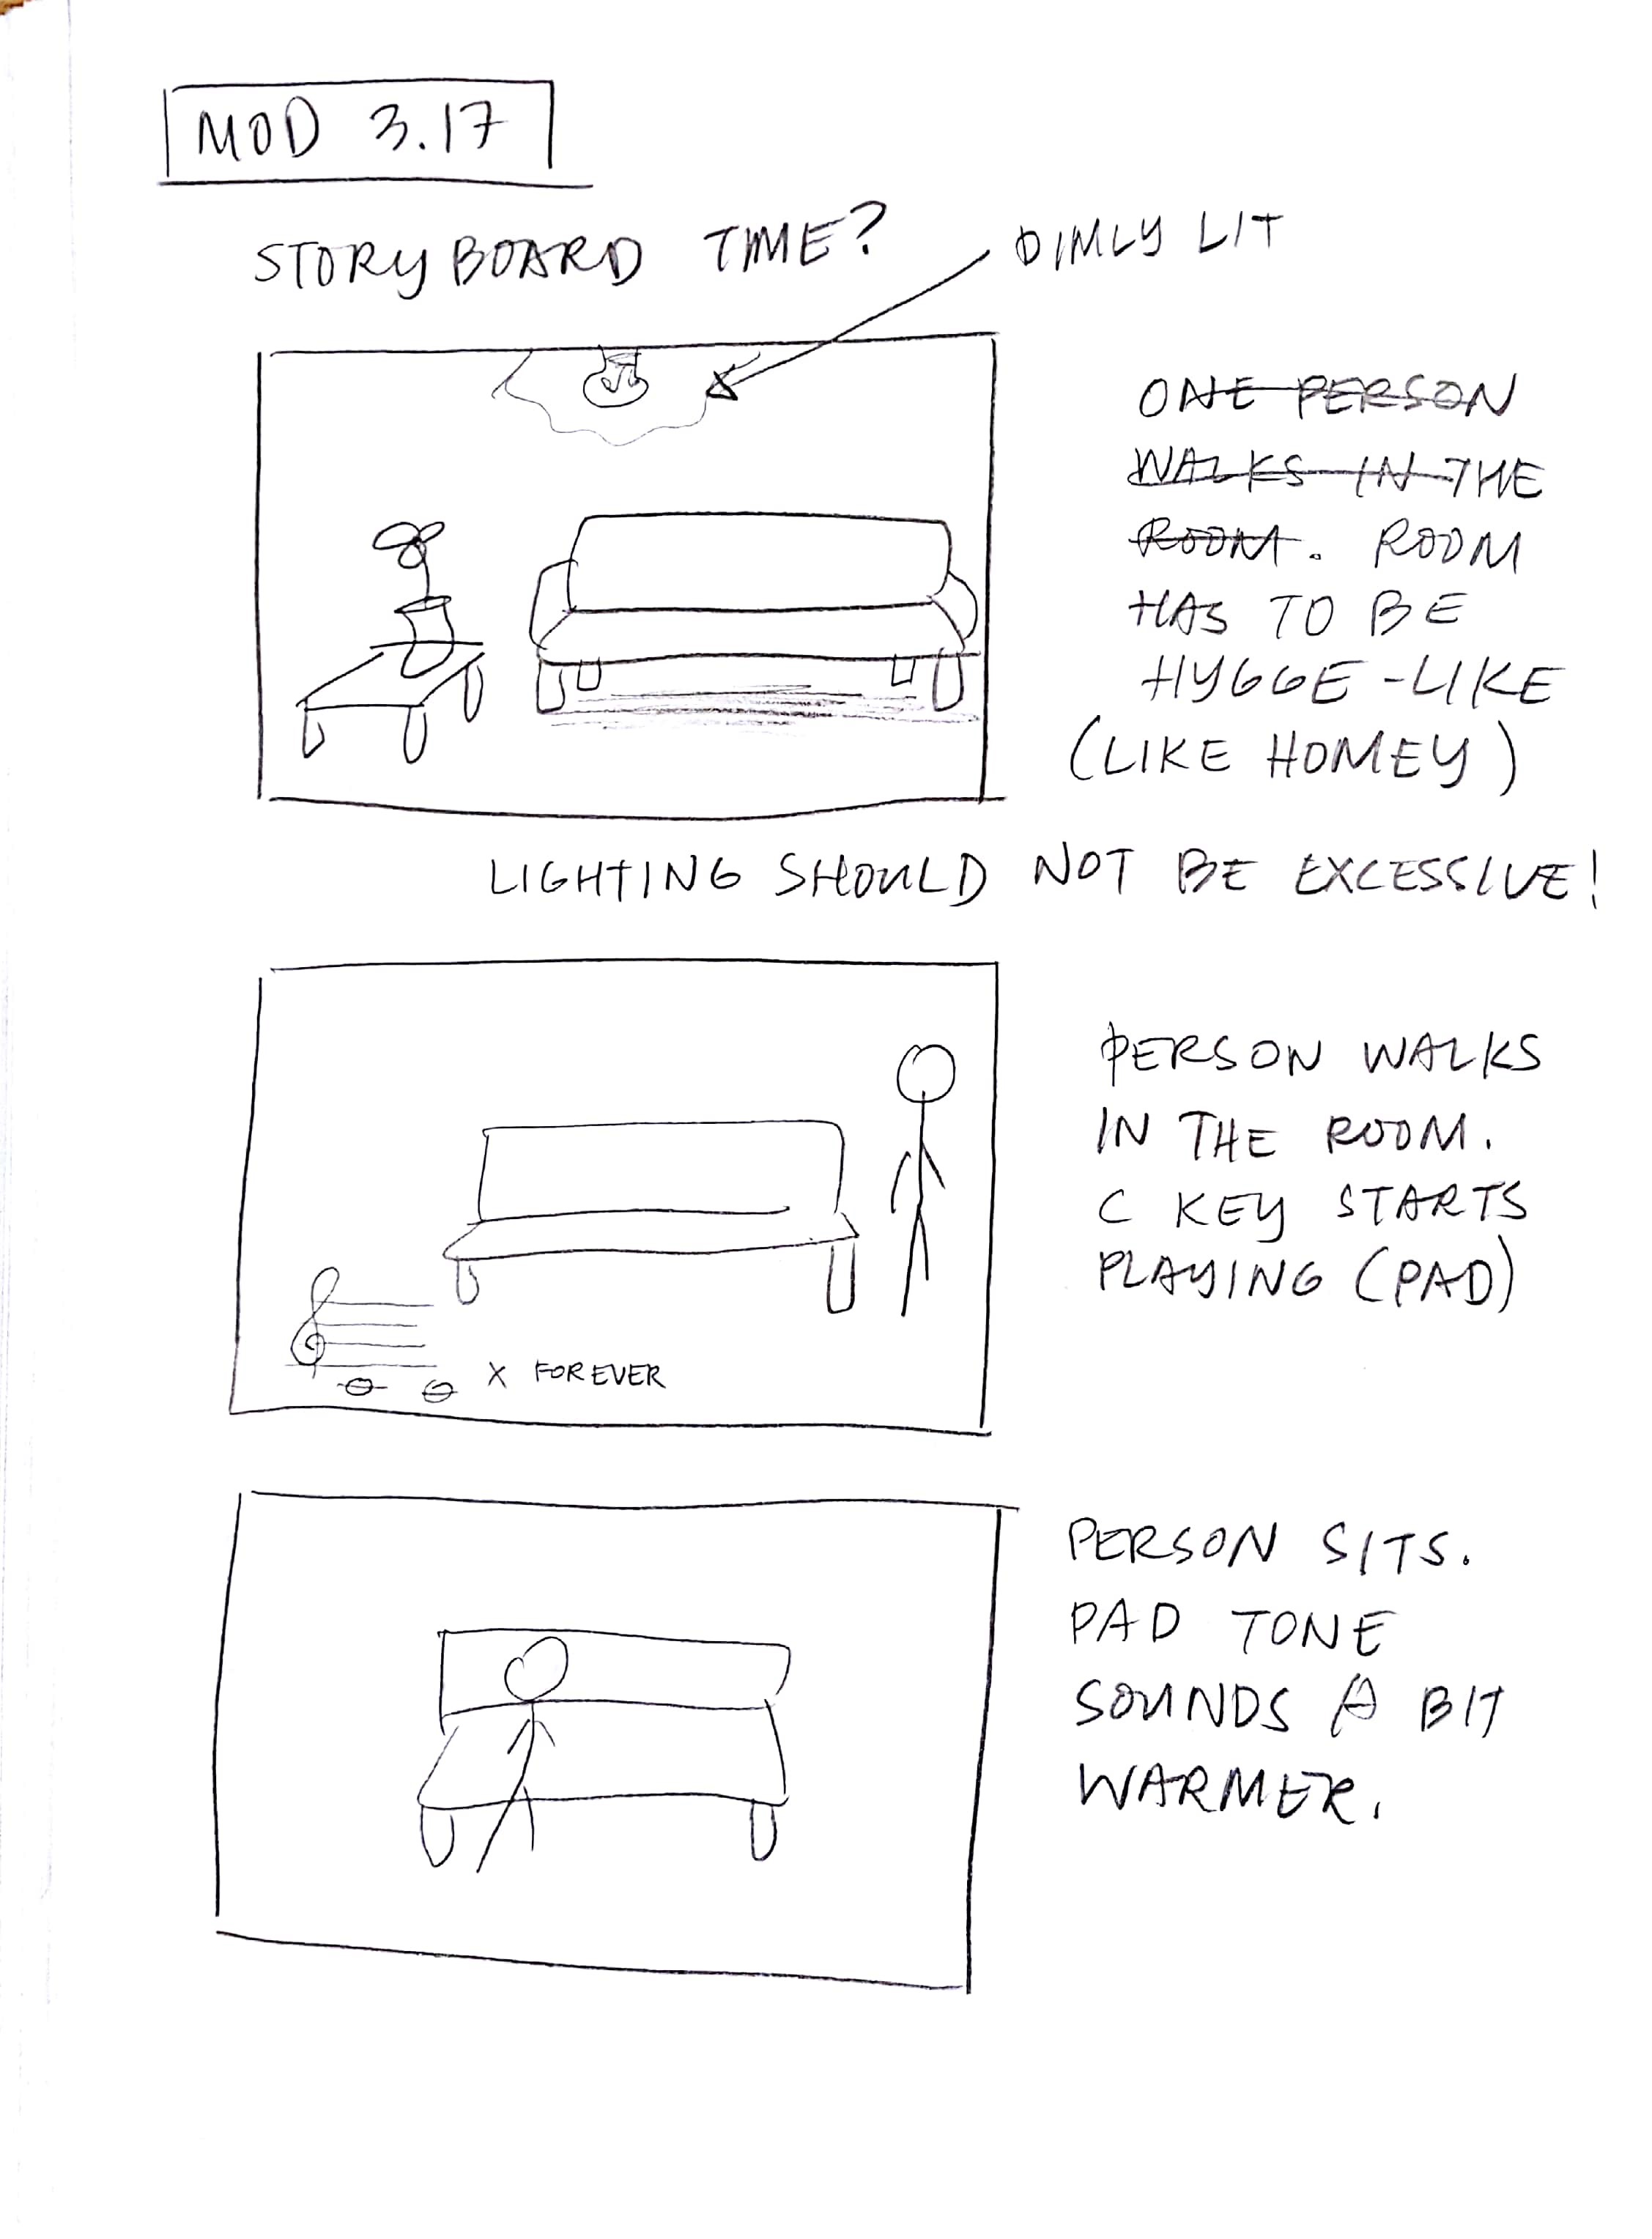 MOD 3.17
STORYBOARD TIME?
DIMLY LIT
ONE PERSON
WALKS IN THE
ROOM. ROOM
HAS TO BE
HYGGE-LIKE
(LIKE HOMEY)
LIGHTING SHOULD NOT BE EXCESSIVE!
PERSON WALKS
IN THE ROOM.
C KEY STARTS
PLAYING (PAD)
X FOREVER
PERSON SITS.
PAD TONE
SOUNDS A BIT
WARMER.